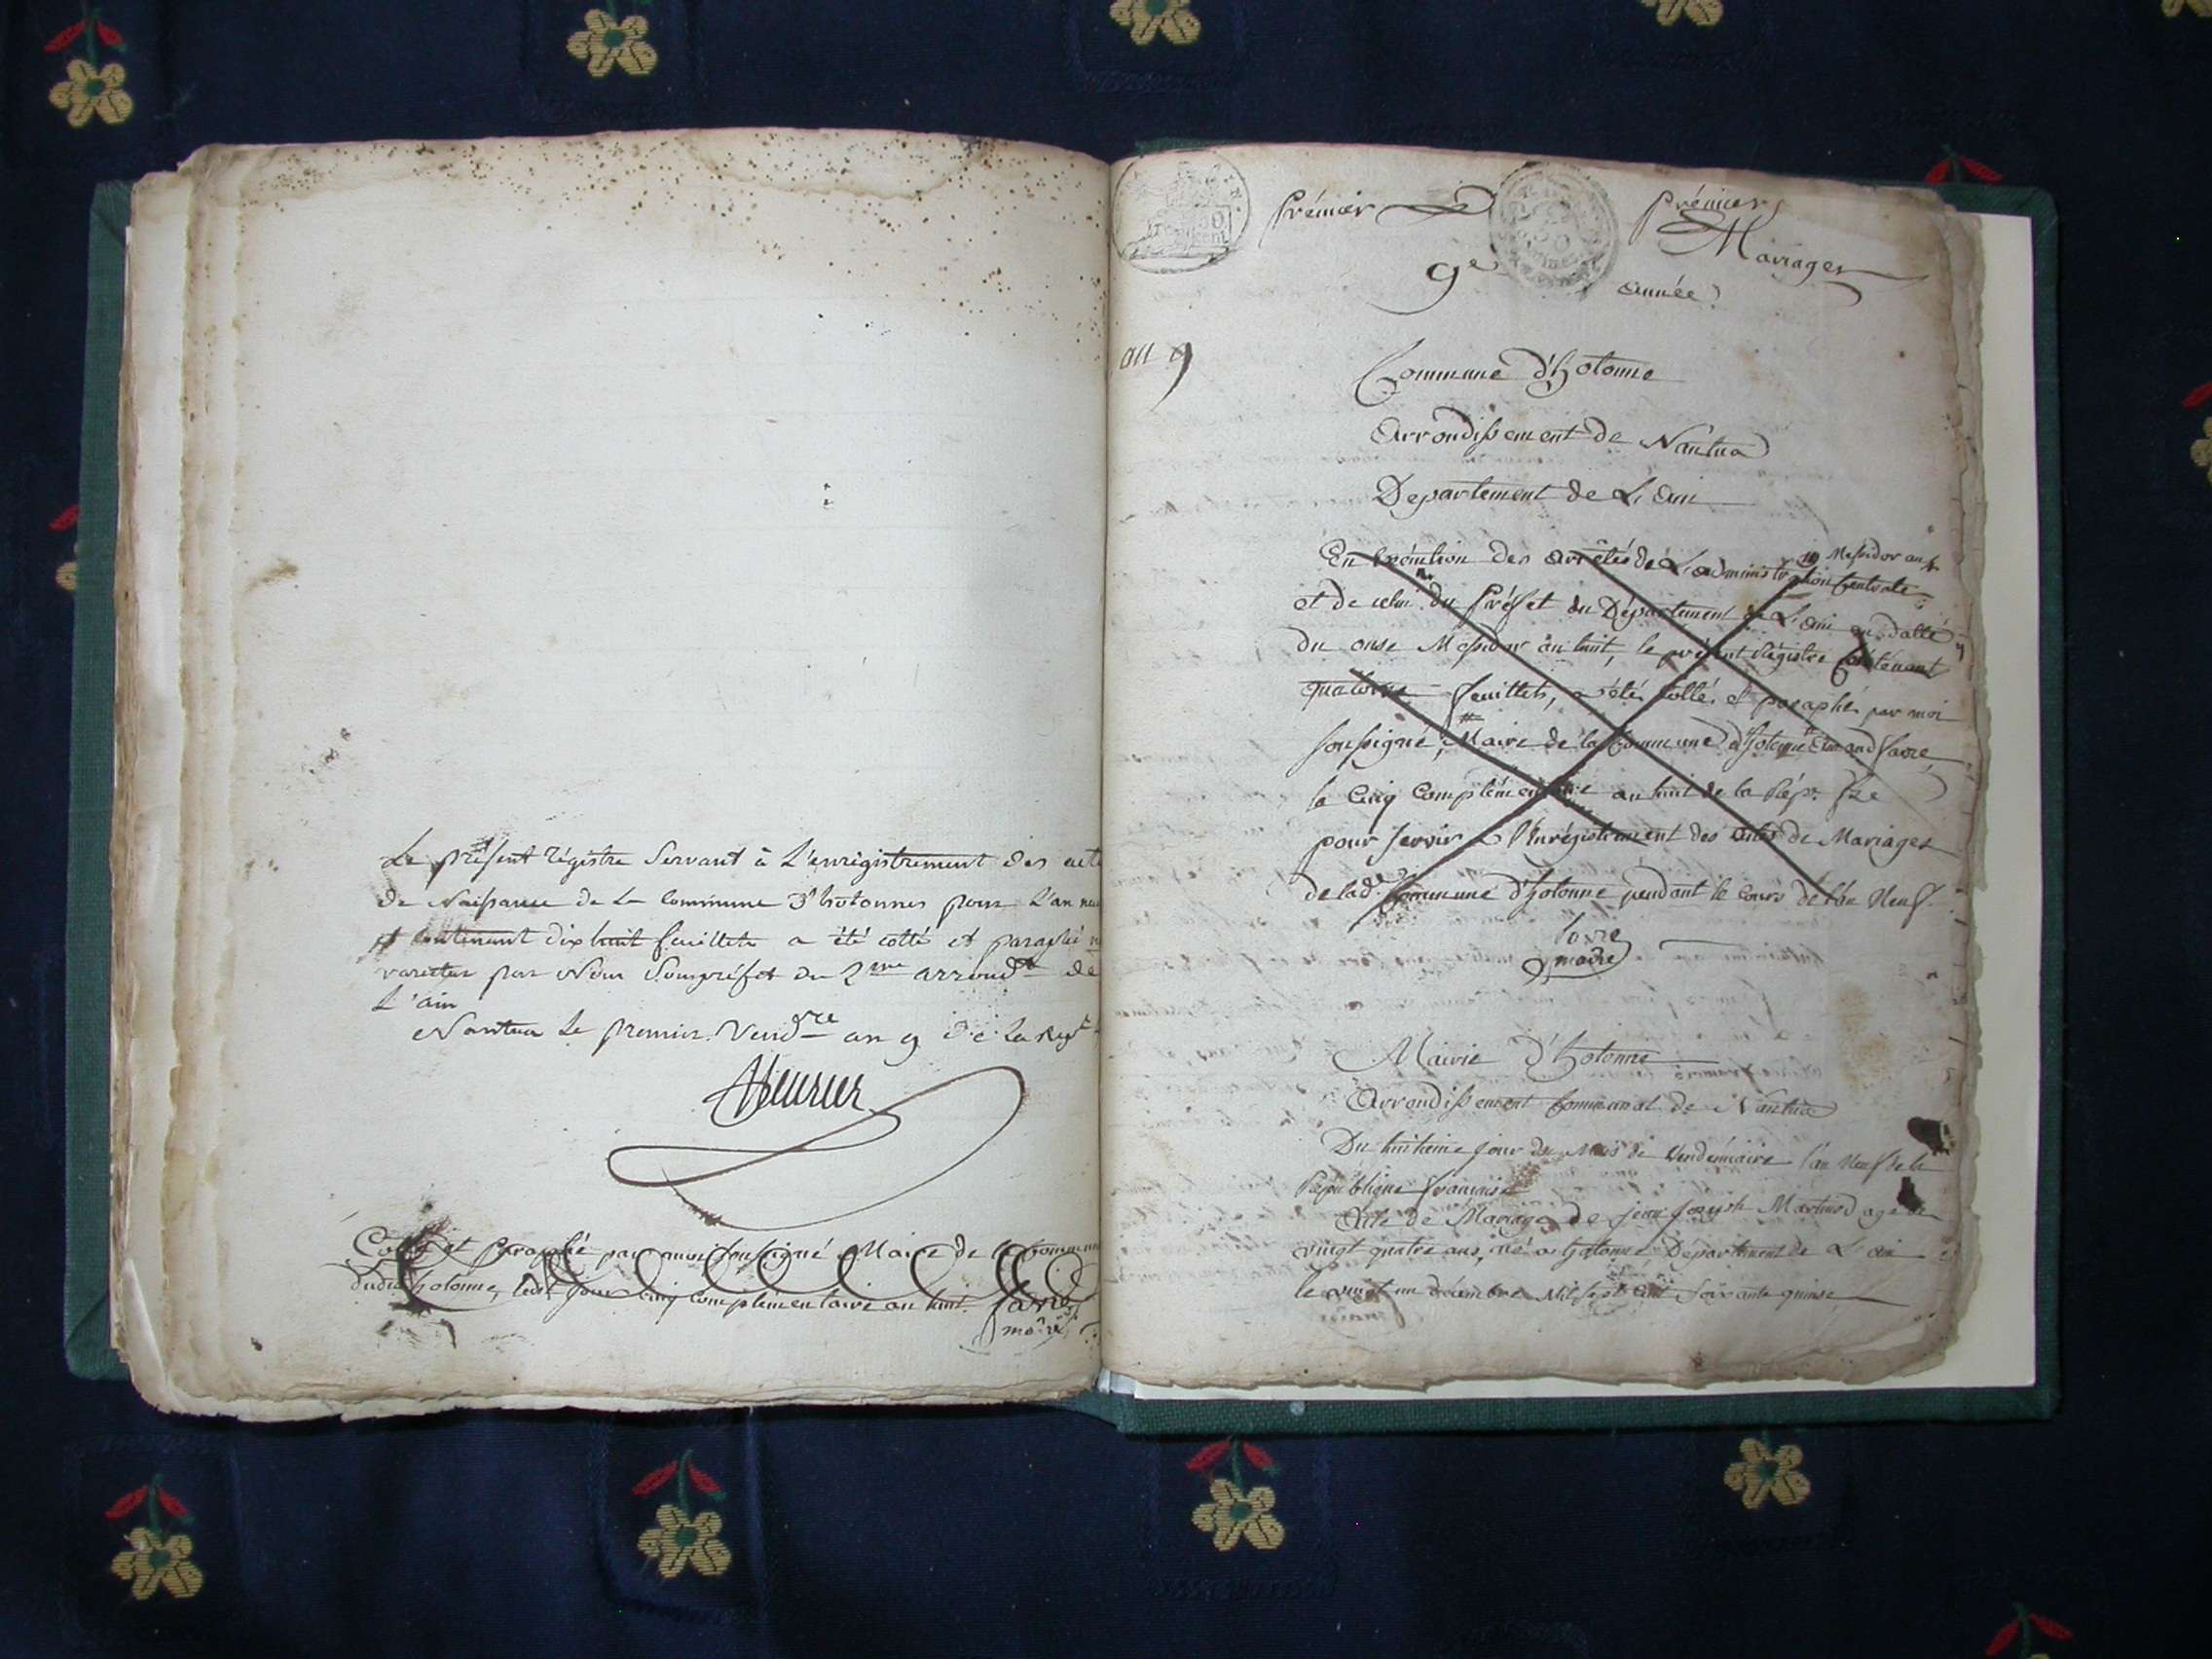 Le présent régistre Servant à L'enrégistrement des acte
de Naissance de La Commune d'hotonnes pour L'an neu
et Contenant dix huit feuillets a été cotté et paraphé n
varietur par Nous Sousprefet du 2me arrondt de
L'ain
Nantua Le premier Vendre an 9 de la Rep
Cotté et Paraphé par moi soussigné Maire de la Commune
dudit hotonne, ledit jour cinq complémentaire an huit. Favre
maire
Prémier
Prémier
Mariages
9e
année
an 9
Commune d'hotonne
Arrondissement de Nantua
Département de L'Ain
En exécution des arrêtés de L'administration Centrale 10 Messidor an
et de celui du Préfet du Département de L'Ain en datte
du onse Messidor an huit, le présent Régistre Contenant
quatorse feuillets, a été Cotté et paraphé par moi
soussigné, Maire de la Commune d'hotonne Favre,
le Cinq Complémentaire an huit de la Rép. fse
pour servir à l'Enrégistrement des actes de Mariages
de lade Commune d'hotonne pendant le Cours de l'an Neuf.
Favre
maire
Mairie d'hotonne
Arrondissement Communal de Nantua
Du huitième jour du Mois de Vendémiaire l'an Neuf de la
République française
Acte de Mariage de jean joseph Martinod agé de
vingt quatre ans, né a hotonne Département de L'ain
le vingt un décembre Mil sept Cent soixante quinse